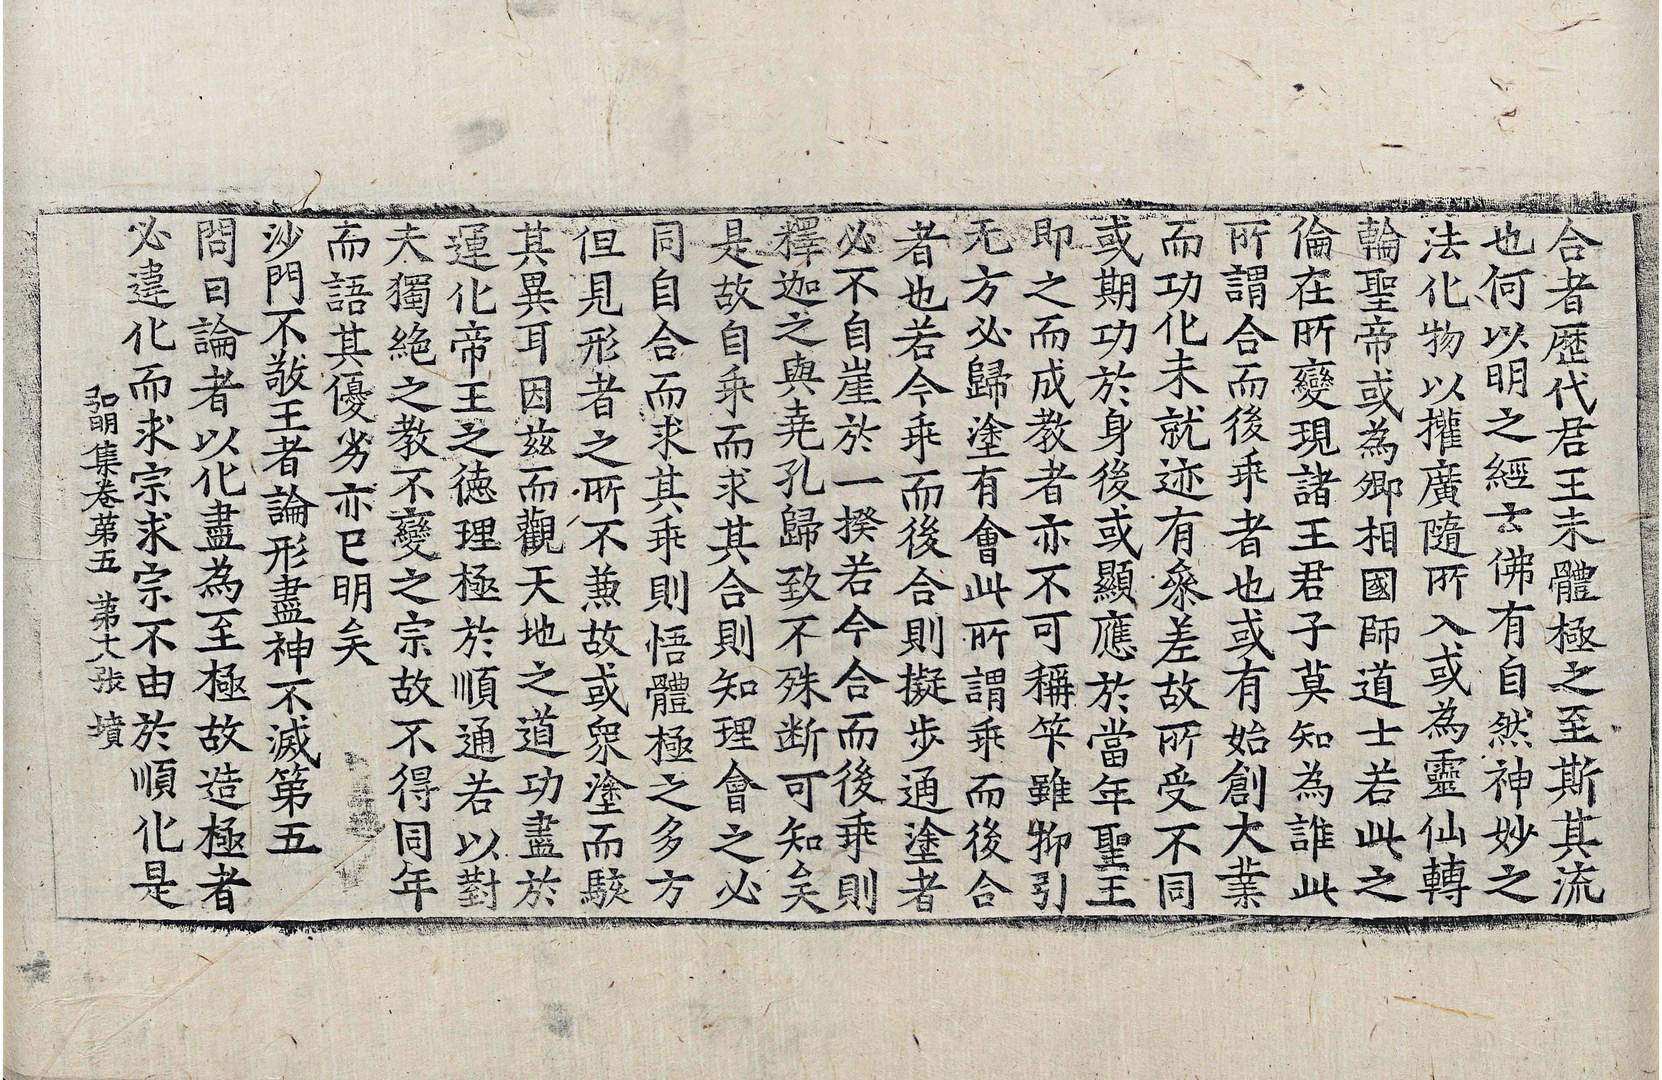 合者歷代君王未體極之至斯其流
也何以明之經云佛有自然神妙之
法化物以攉廣隨所入或為靈仙轉
輪聖帝或為卿相國師道士若此之
倫在所變現諸王君子莫知為誰此
所謂合而後乖者也或有始創大業
而功化未就迹有叅差故所受不同
或期功於身後或顯應於當年聖王
即之而成教者亦不可稱筭雖抑引
无方必歸塗有會此所謂乖而後合
者也若今乖而後合則擬步通塗者
必不自崖於一揆若今合而後乖則
釋迦之與堯孔歸致不殊断可知矣
是故自乖而求其合則知理會之必
同自合而求其乖則悟體極之多方
但見形者之所不兼故或衆塗而駭
其異耳因兹而觀天地之道功盡於
運化帝王之德理極於順通若以對
夫獨絶之教不變之宗故不得同年
而語其優劣亦已明矣
沙門不敬王者論形盡神不滅第五
問曰論者以化盡為至極故造極者
必違化而求宗求宗不由於順化是
弘明集卷第五 第十六張 墳